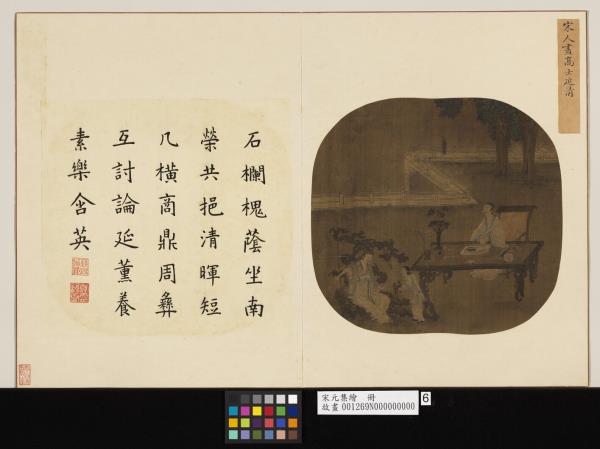 宋人畫高士延清
石欄槐蔭坐南
榮共挹清暉短
几橫商鼎周彝
互討論延薰養
素樂含英
宋元集繪 冊
故畫 001269N000000000
6